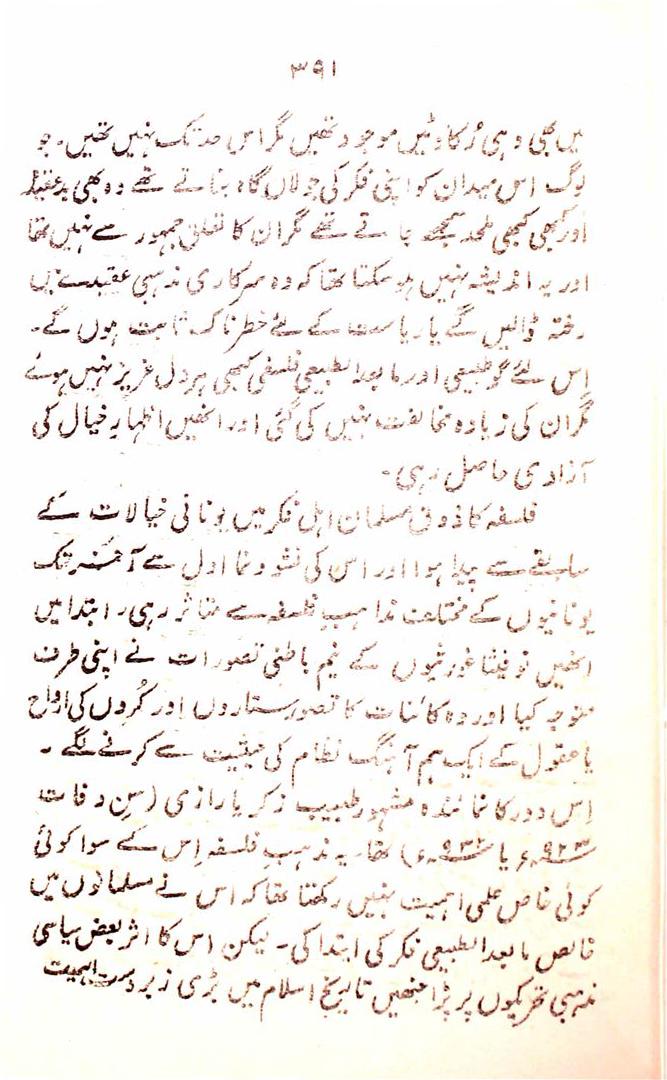 ۳۹۱
میں بھی وہی رُکاوٹیں موجود تھیں مگر اس حد تک نہیں تھیں۔ جو
لوگ اس میدان کو اپنی فکر کی جولاں گاہ بناتے تھے وہ بھی بدعقیدہ
اور کبھی کبھی ملحد سمجھے جاتے تھے مگر ان کا تعلق جمہور سے نہیں تھا
اور یہ اندیشہ نہیں ہو سکتا تھا کہ وہ سرکاری مذہبی عقیدے میں
رخنہ ڈالیں گے یا ریاست کے لئے خطرناک ثابت ہوں گے۔
اس لئے گو طبیعی اور مابعد الطبیعی فلسفی کبھی ہر دل عزیز نہیں ہوئے
مگر ان کی زیادہ مخالفت نہیں کی گئی اور انھیں اظہارِ خیال کی
آزادی حاصل رہی۔
فلسفہ کا ذوق مسلمان اہلِ فکر میں یونانی خیالات کے
سابقے سے پیدا ہوا اور اس کی نشوونما اول سے آخر تک
یونانیوں کے مختلف مذاہب فلسفہ سے متاثر رہی۔ ابتدا میں
انھیں نو فیثاغورثیوں کے نیم باطنی تصورات نے اپنی طرف
متوجہ کیا اور وہ کائنات کا تصور ستاروں اور کُروں کی ارواح
یا عقول کے ایک ہم آہنگ نظام کی حیثیت سے کرنے لگے۔
اس دور کا نمائندہ مشہور طبیب زکریا رازی (سن وفات
۹۲۳ء یا ۹۳۲ء) تھا۔ یہ مذہب فلسفہ اس کے سوا کوئی
کوئی خاص علمی اہمیت نہیں رکھتا تھا کہ اس نے مسلمانوں میں
خالص مابعد الطبیعی فکر کی ابتدا کی۔ لیکن اس کا اثر بعض سیاسی
مذہبی تحریکوں پر پڑا جنھیں تاریخ اسلام میں بڑی زبردست اہمیت